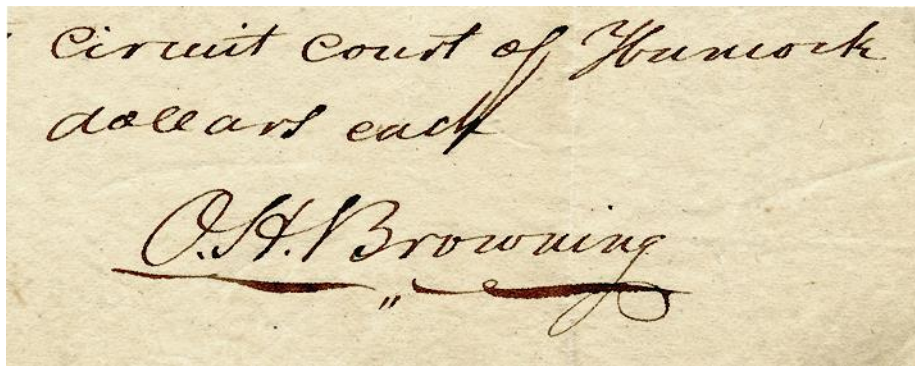 Circuit Court of Hancock
dollars each
O.H. Browning